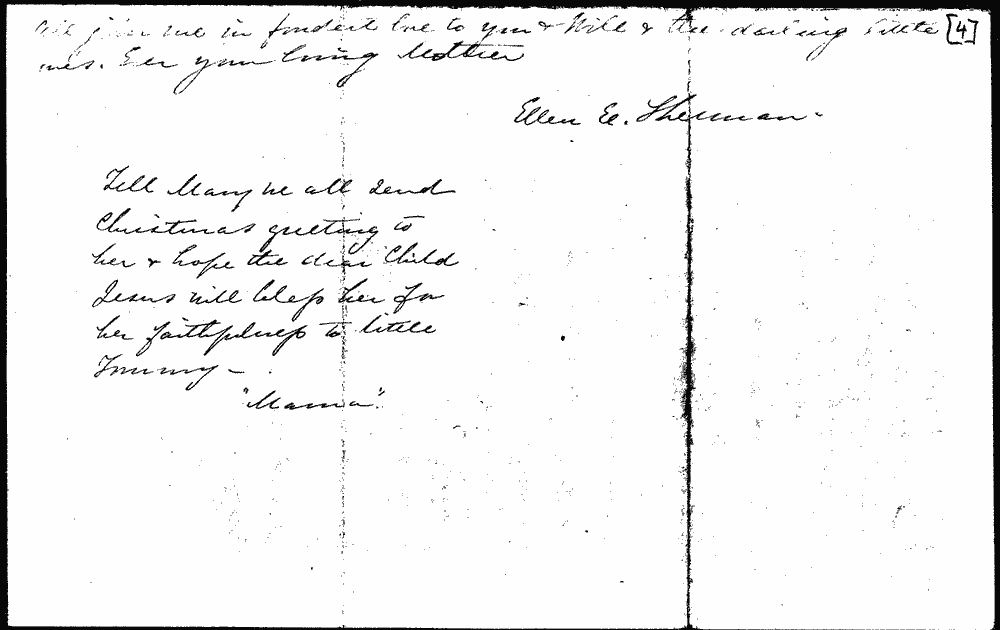 All join me in fondest love to you & Will & the darling little [4]
ones. Ever your loving Mother
Ellen E. Sherman.
Tell Mary we all send
Christmas greeting to
her & hope the dear Child
Jesus will bless her for
her faithfulness to little
Tommy —
"Mama".